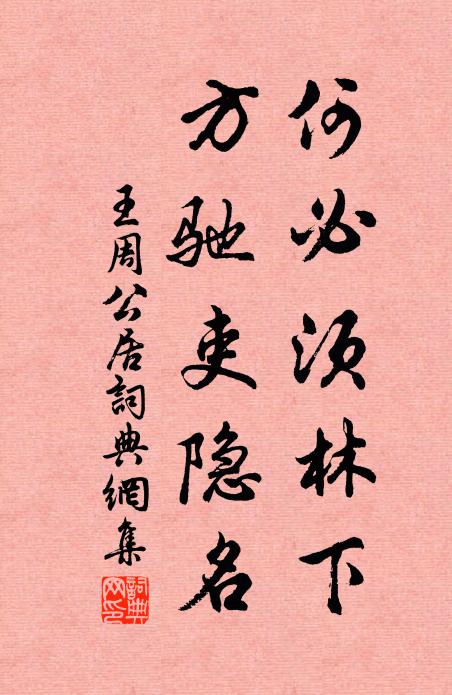 何必须林下
方驰吏隐名
王周公居詞典網集
詞典
网印